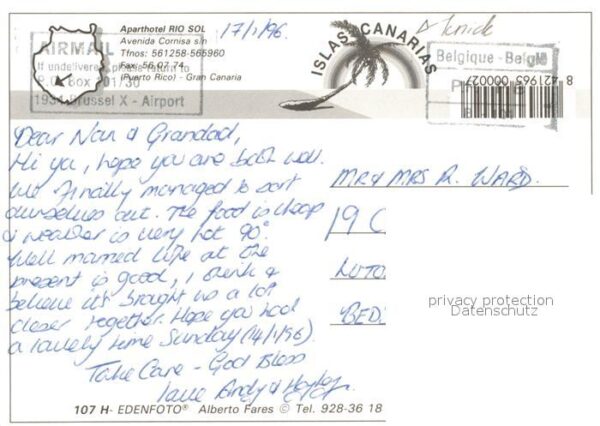 Aparthotel RIO SOL
Avenida Cornisa s/n
Tfnos: 561258-565960
Fax: 56 07 74
(Puerto Rico) - Gran Canaria
17/1/96.
AIRMAIL
If undelivered please return to
P.O. Box 701/30
1934 Brussel X - Airport
ISLAS CANARIAS
Belgique - België
8 421965 000027
Dear Nan & Grandad,
Hi ya, hope you are both well.
We finally managed to sort
ourselves out. The food is cheap
& weather is very hot 90°.
Well married life at the
present is good, I think &
believe it's brought us a lot
closer together. Hope you had
a lovely time Sunday (14/1/96).
Take Care - God Bless
love Andy & Hayley
MR & MRS R. WARD.
19 C
LUTO
BED
privacy protection
Datenschutz
107 H- EDENFOTO® Alberto Fares © Tel. 928-36 18